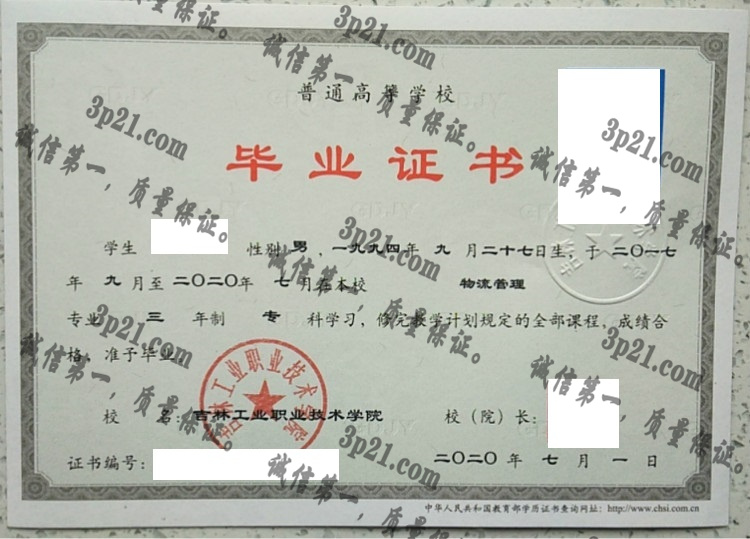 普通高等学校
毕业证书
学生 性别 男 ，一九九四年 九 月二十七日生，于 二〇一七
年 九 月至 二〇二〇年 七 月在本校 物流管理
专业 三 年制 专 科学习，修完教学计划规定的全部课程，成绩合
格，准予毕业。
吉林工业职业技术学院
校 名：吉林工业职业技术学院 校（院）长：
证书编号： 二〇二〇 年 七 月 一 日
中华人民共和国教育部学历证书查询网址：http://www.chsi.com.cn
3p21.com
诚信第一，质量保证。
3p21.com
诚信第一，质量保证。
3p21.com
诚信第一，质量保证。
3p21.com
诚信第一，质量保证。
3p21.com
诚信第一，质量保证。
3p21.com
诚信第一，质量保证。
3p21.com
诚信第一，质量保证。
3p21.com
诚信第一，质量保证。